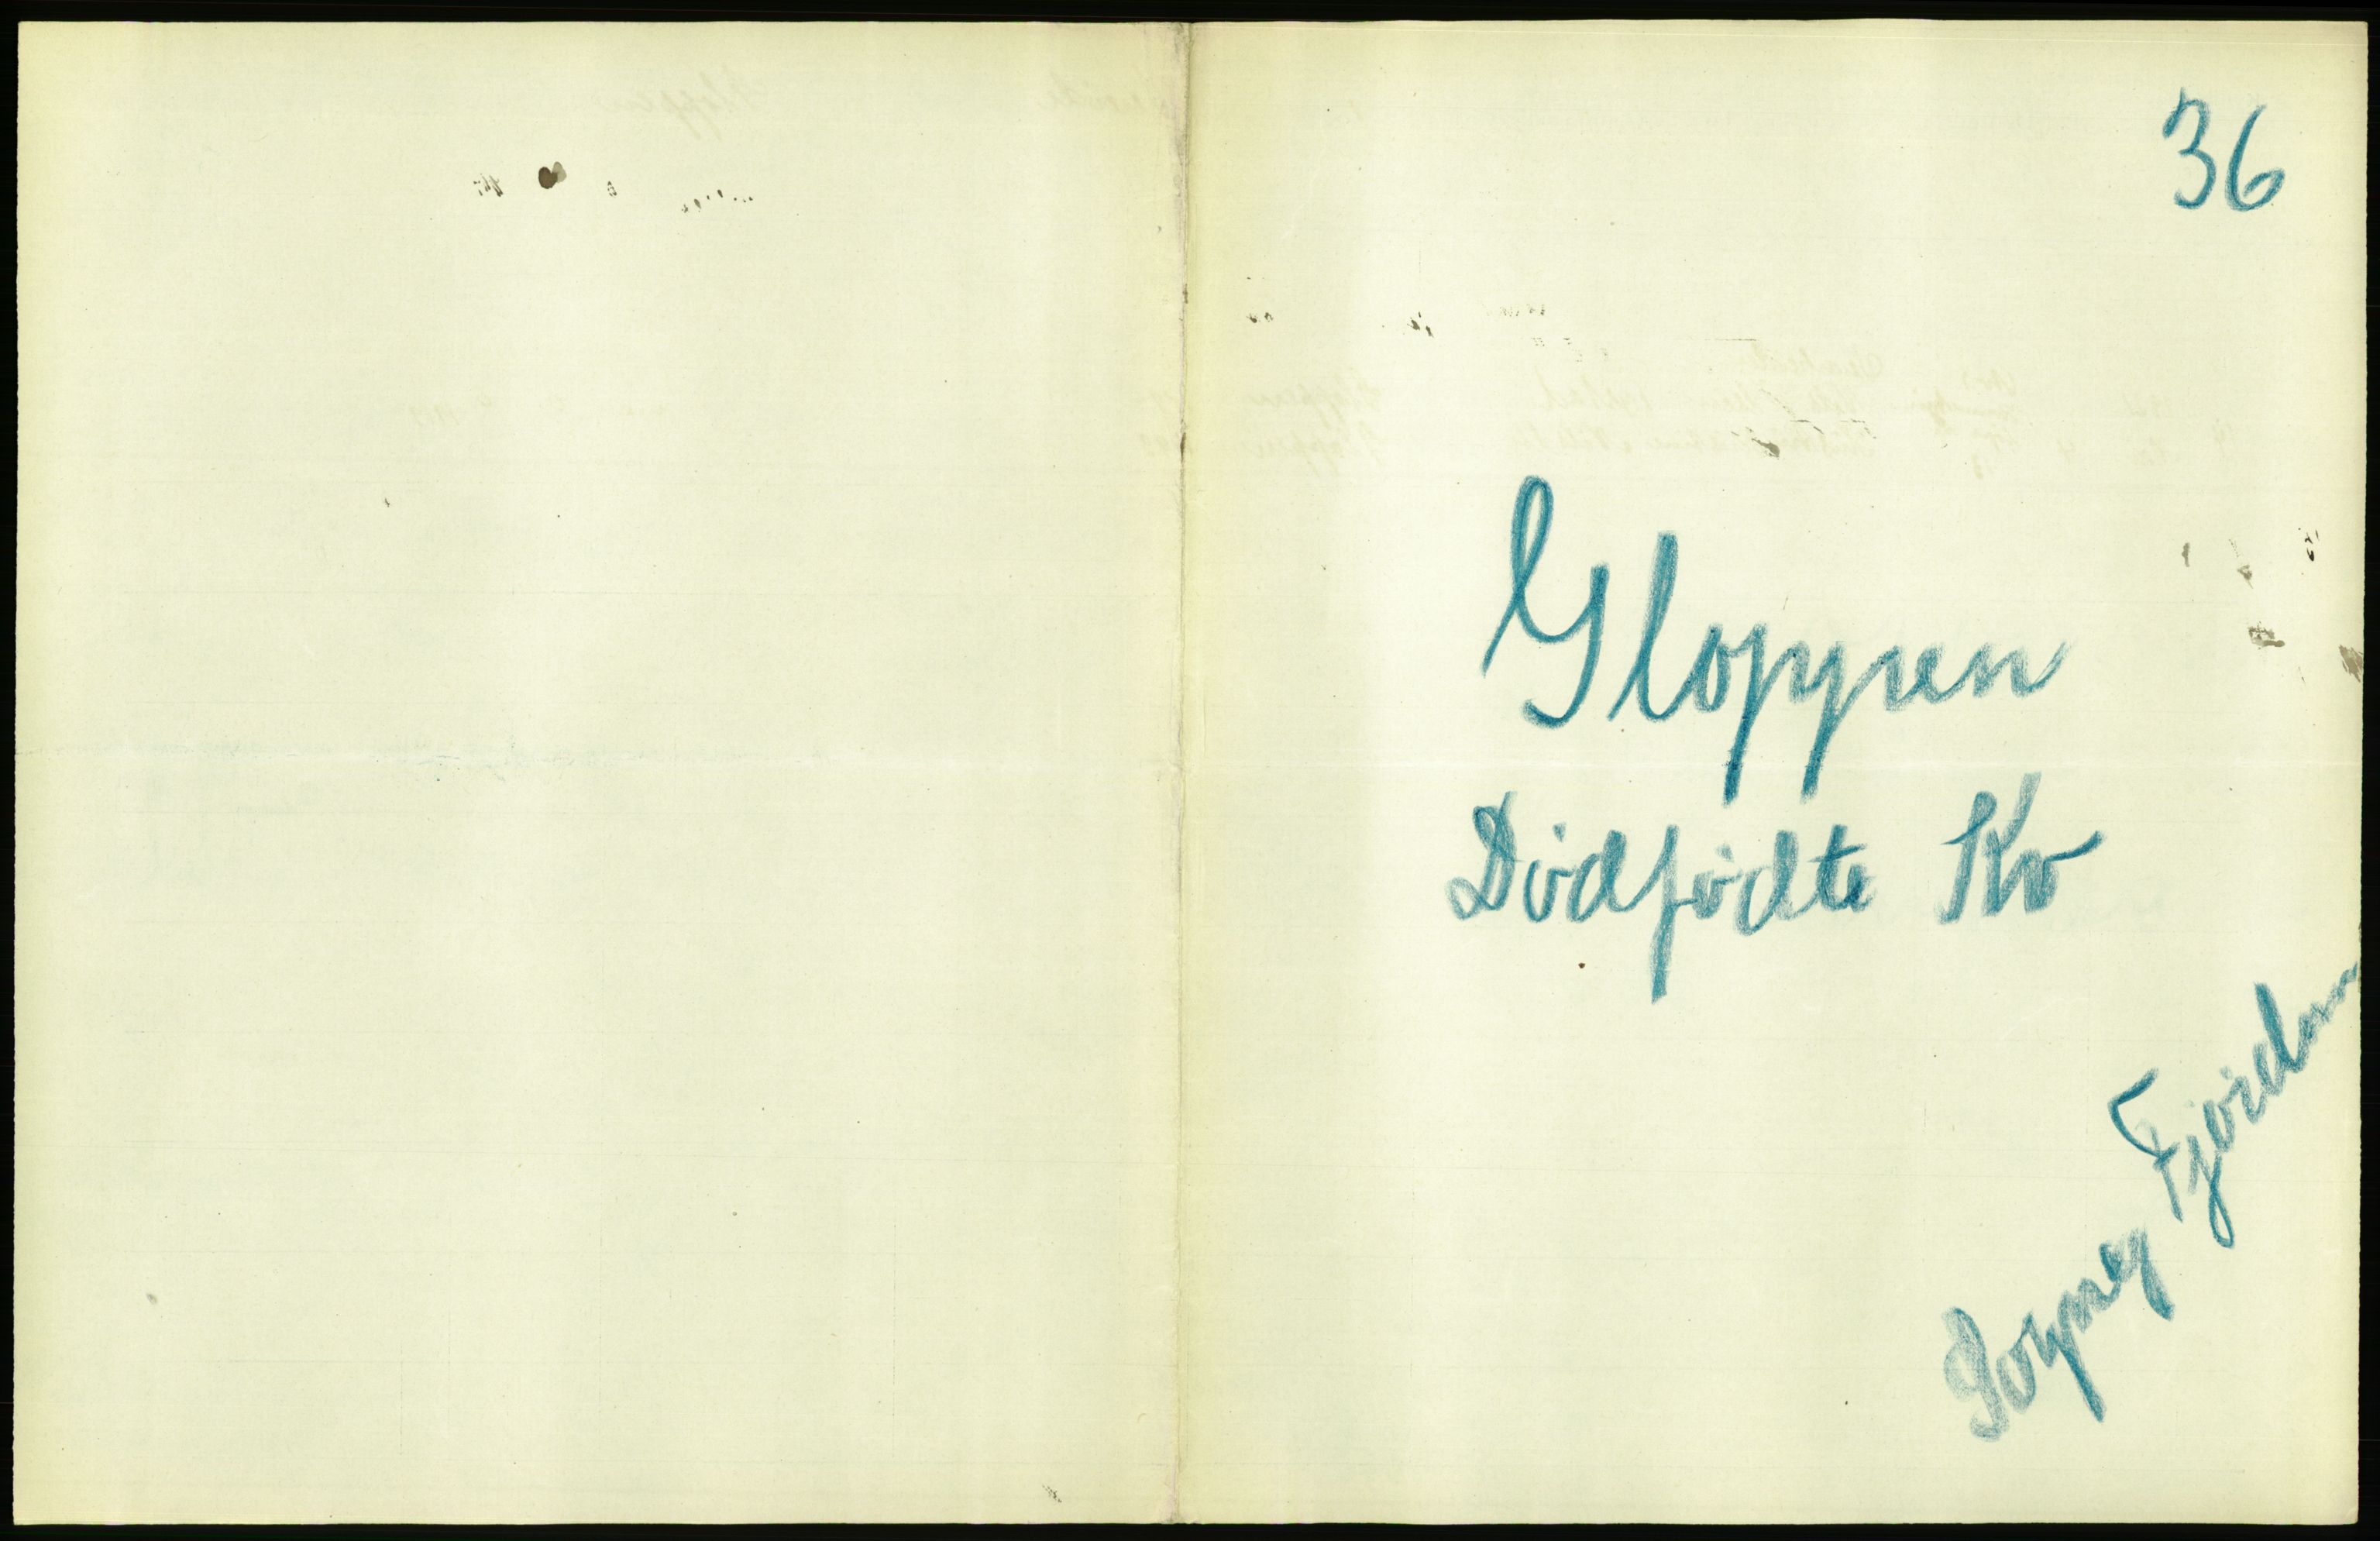 36
Gloppen
Dødfødte Kv
Sogn og Fjordan